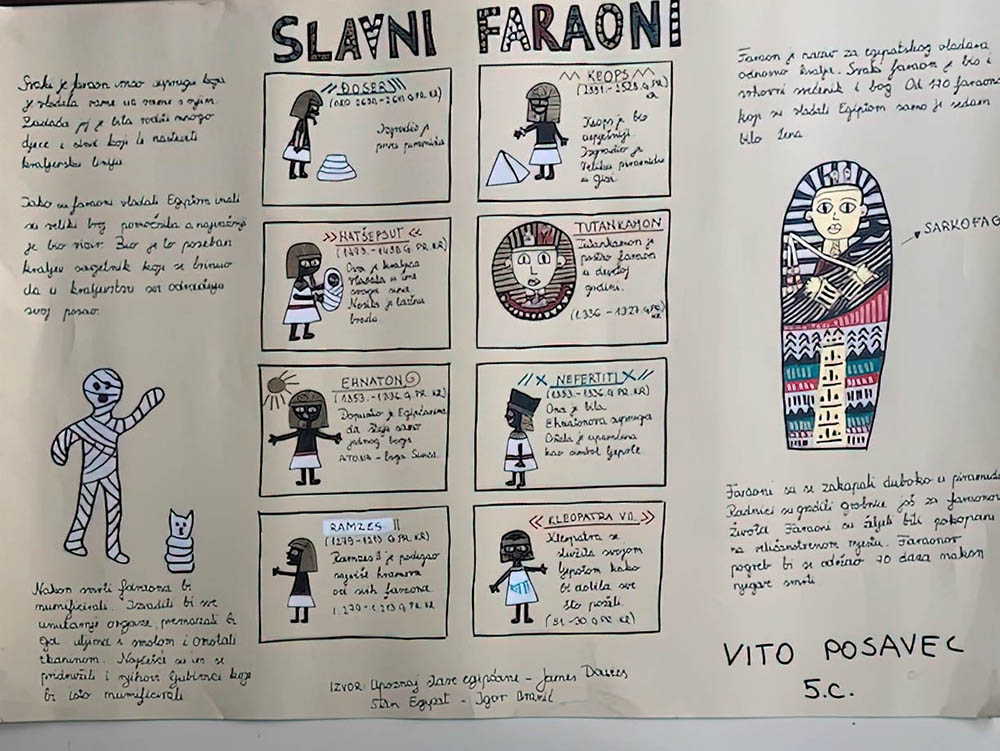 SLAVNI FARAONI
Svaki je faraon imao suprugu koja
je vladala rame uz rame s njim.
Zadaća joj je bila roditi mnogo
djece i sinove koji će nastaviti
kraljevsku liniju
Iako su faraoni vladali Egiptom imali
su veliki broj pomoćnika a najvažniji
je bio vezir. Bio je to poseban
kraljev savjetnik koji se brinuo
da u kraljevstvu svi odrađuju
svoj posao.
Nakon smrti faraona bi
mumificirali. Izvadili bi sve
unutarnje organe, premazali bi
ga uljima i smolom i omotali
tkaninom. Najčešći su im se
pridružili i njihovi ljubimci koje
bi isto mumificirali
ĐOSER
(OKO 2630. - 2611 G. PR. KR)
Izgradio je
prvu piramidu
KEOPS
(2551. - 2528. G. PR.
KR)
Keops je bio
uspješniji
Izgradio je
Veliku piramidu
u Gizi
HATŠEPSUT
(1473. - 1458 G. PR. KR.)
Ova je kraljica
vladala u ime
svoga sina.
Nosila je lažnu
bradu
TUTANKAMON
Tutankamon je
postao faraon
u devetoj
godini.
(1336 - 1327 G. PR.
KR
EHNATON
(1353. - 1336. G PR. KR.)
Dopustio je Egipćanima
da štuju samo
jednog boga
ATONA - boga Sunca.
NEFERTITI
(1353. - 1336 G. PR. KR.)
Ona je bila
Ehnatonova supruga
Ostala je upamćena
kao simbol ljepote.
RAMZES II
(1279 - 1213 G. PR. KR.)
Ramzes II je podigao
najviše hramova
od svih faraona
1.279 - 1 213 G. PR. KR
KLEOPATRA VII.
Kleopatra se
služila svojom
ljepotom kako
bi dobila sve
što poželi.
(51 - 30 G. PR. KR)
Faraon je naziv za egipatskog vladara
odnosno kralja. Svaki faraon je bio i
vrhovni svećenik i bog. Od 170 faraona
koji su vladali Egiptom samo je sedam
bilo žena
SARKOFAG
Faraoni su se zakapali duboko u piramide
Radnici su gradili grobnice još za faraonova
života Faraoni su željeli biti pokopani
na veličanstvenom mjestu. Faraonov
pogreb bi se održao 70 dana nakon
njegove smrti
VITO POSAVEC
5.c.
IZVOR: Upoznaj stare egipćane - James Davies
Stari Egipat - Igor